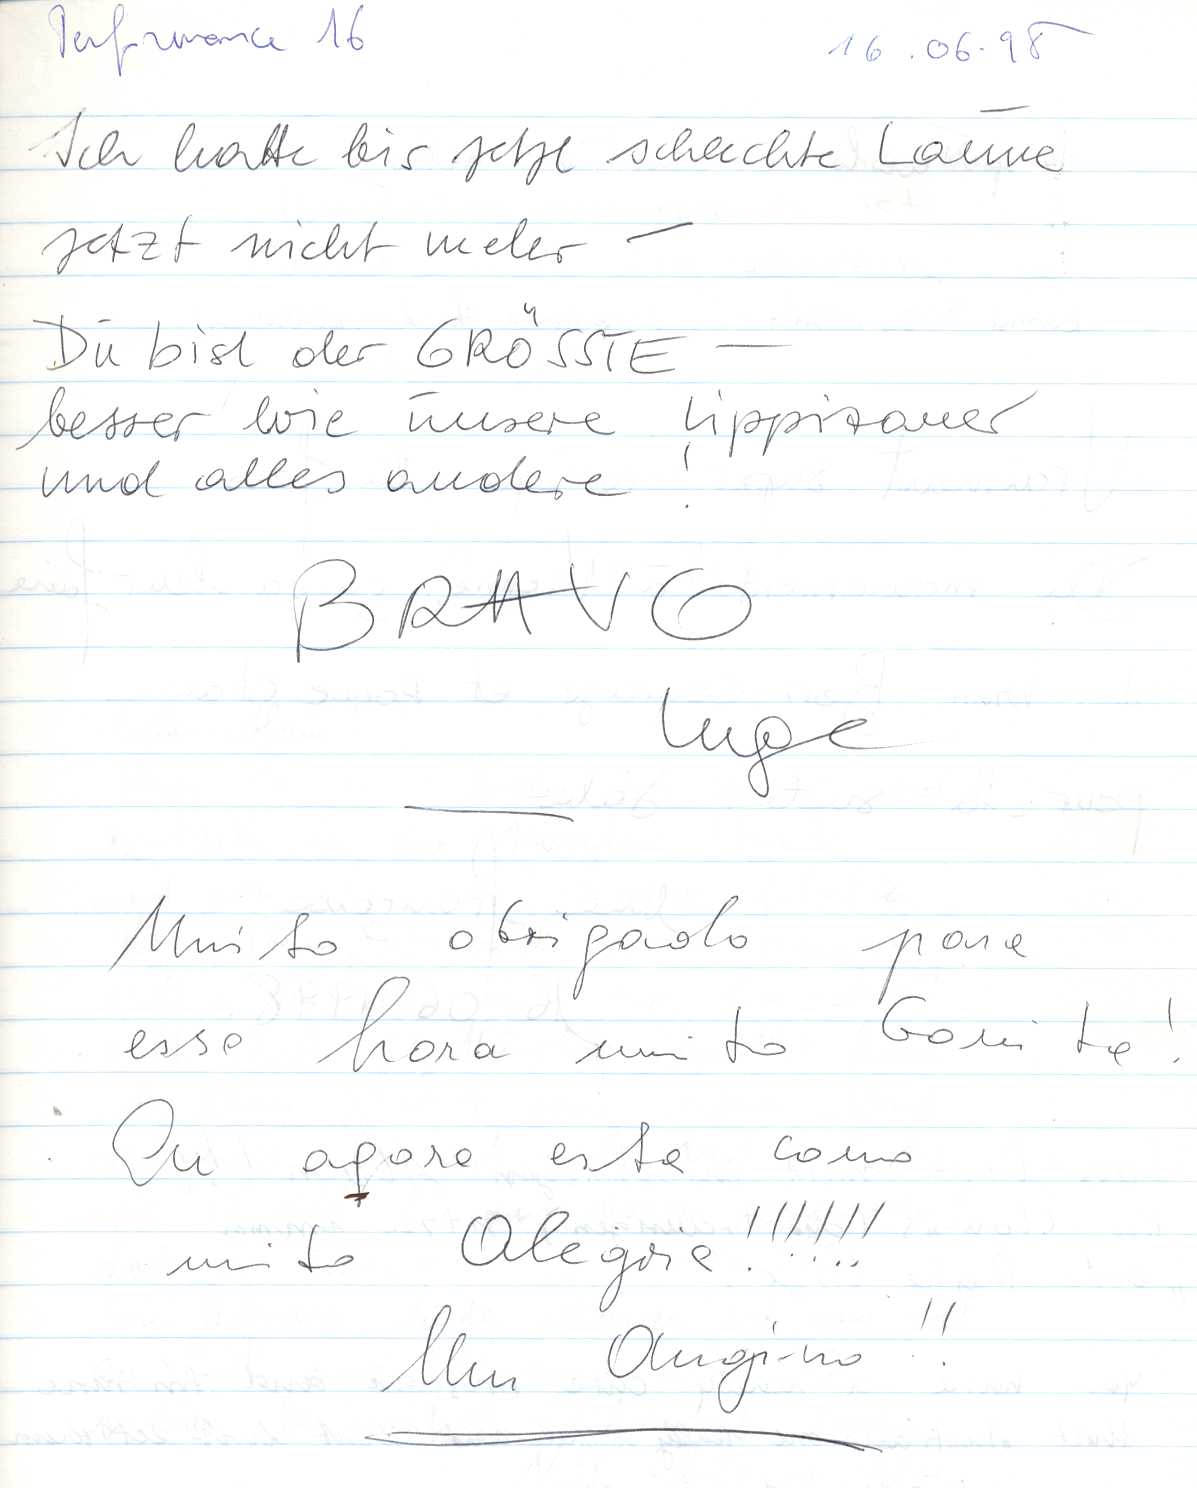 Performance 16 16.06.98
Ich hatte bis jetzt schlechte Laune
jetzt nicht mehr –
Du bist der GRÖSSTE –
besser wie unsere Lippizaner
und alles andere!
BRAVO
Inge
Muito obrigado para
esse hora muito bonita!
Eu agora esta como
muito Alegria!!!!!!
Um